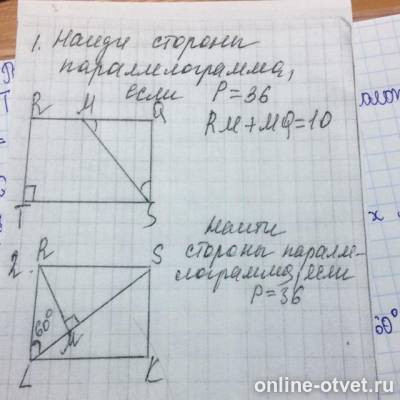 1. Найди стороны
параллелограмма,
если P=36
RM+MQ=10
R M Q
T S
Найти
стороны паралле-
лограмма, если
P=36
2. R S
60°
M
L K
x
60°
online-otvet.ru